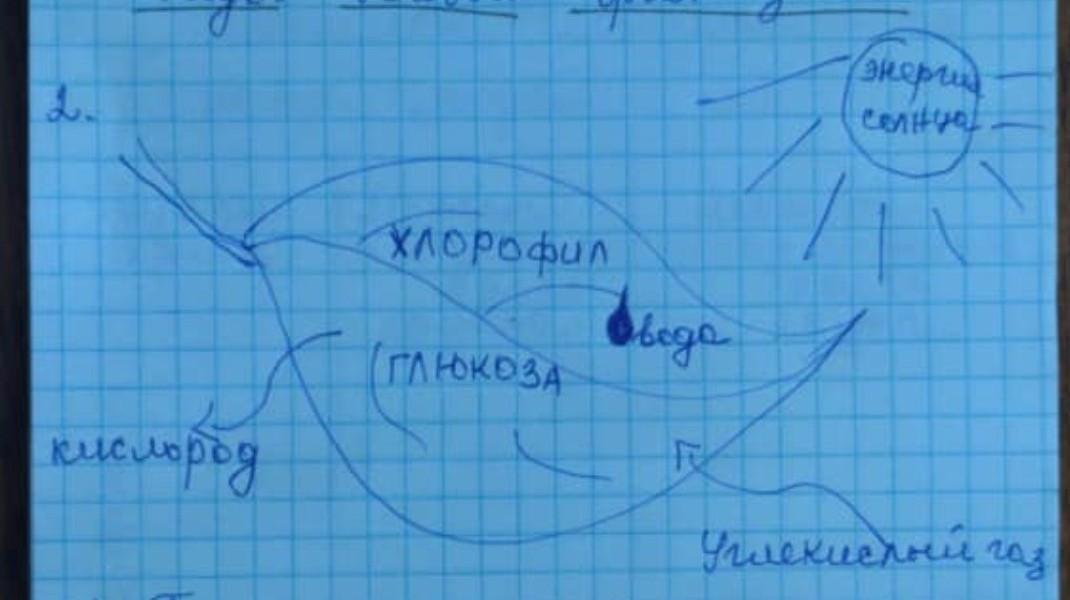 2.
энергия
солнца
хлорофил
вода
глюкоза
кислород
Углекислый газ